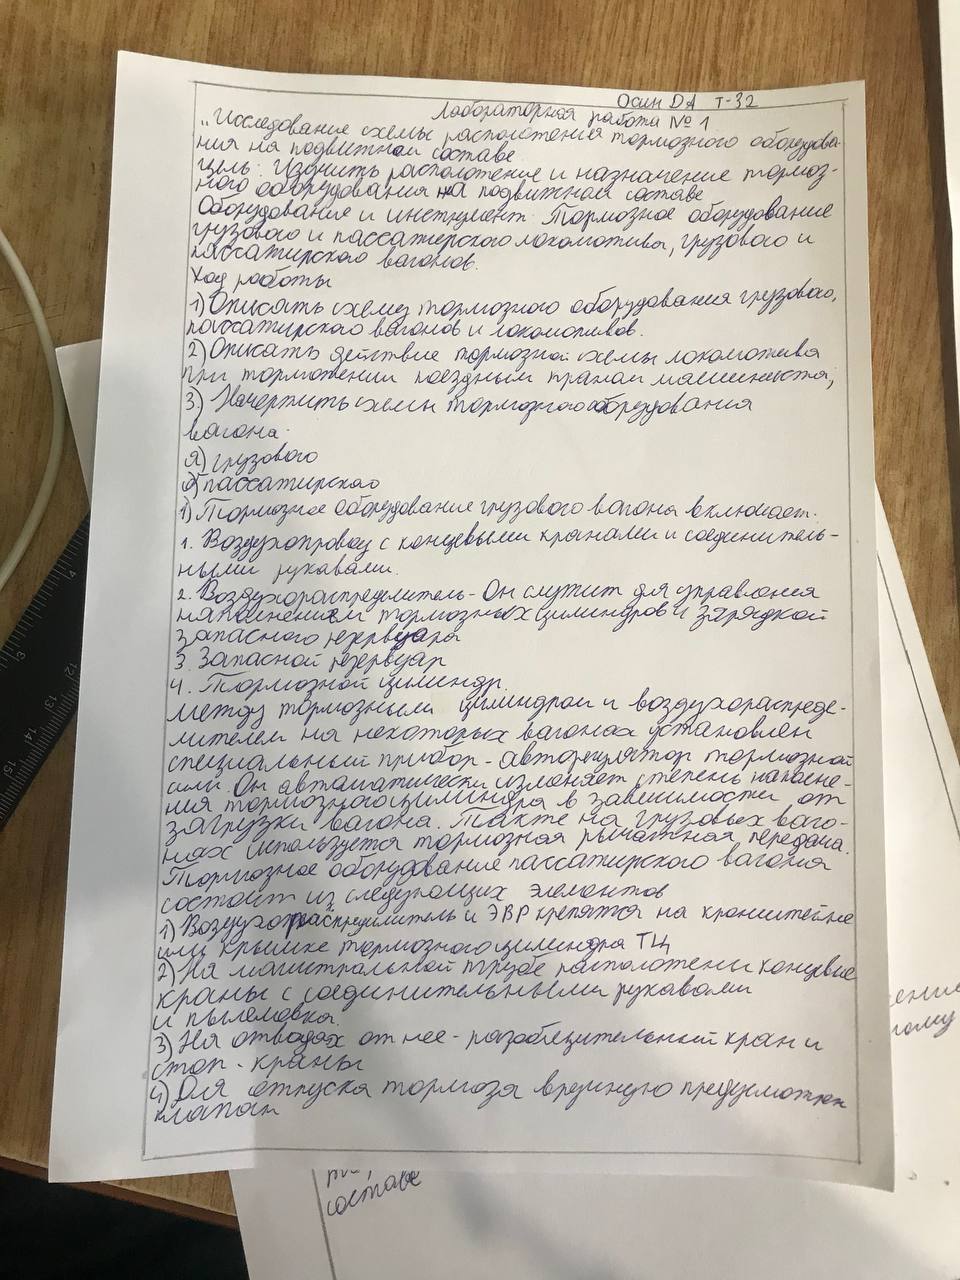 Осин DA Т-32
Лабораторная работа № 1
„Исследование схемы расположения тормозного оборудова-
ния на подвижном составе
Цель: Изучить расположение и назначение тормоз-
ного оборудования на подвижном составе
Оборудование и инструмент: Тормозное оборудование
грузового и пассажирского локомотива, грузового и
пассажирского вагонов.
Ход работы
1) Описать схему тормозного оборудования грузового,
пассажирского вагонов и локомотивов.
2) Описать действие тормозной схемы локомотива
при торможении поездным краном машиниста;
3) Начертить схемы тормозного оборудования
вагона.
а) грузового
б) пассажирского
1) Тормозное оборудование грузового вагона включает:
1. Воздухопровод с концевыми кранами и соединитель-
ными рукавами.
2. Воздухораспределитель - Он служит для управления
наполнением тормозных цилиндров и зарядкой
запасного резервуара
3. Запасной резервуар
4. Тормозной цилиндр.
Между тормозным цилиндром и воздухораспреде-
лителем на некоторых вагонах установлен
специальный прибор - авторегулятор тормозной
силы. Он автоматически изменяет степень наполне-
ния тормозного цилиндра в зависимости от
загрузки вагона. Также на грузовых ваго-
нах используется тормозная рычажная передача.
Тормозное оборудование пассажирского вагона
состоит из следующих элементов
1) Воздухораспределитель и ЭВР крепятся на кронштейне
или крышке тормозного цилиндра ТЦ
2) На магистральной трубе расположены концевые
краны с соединительными рукавами
и пылеловка.
3) На отводах от нее - разобщительный кран и
стоп - краны
4) Для отпуска тормоза вручную предусмотрен
клапан
составе